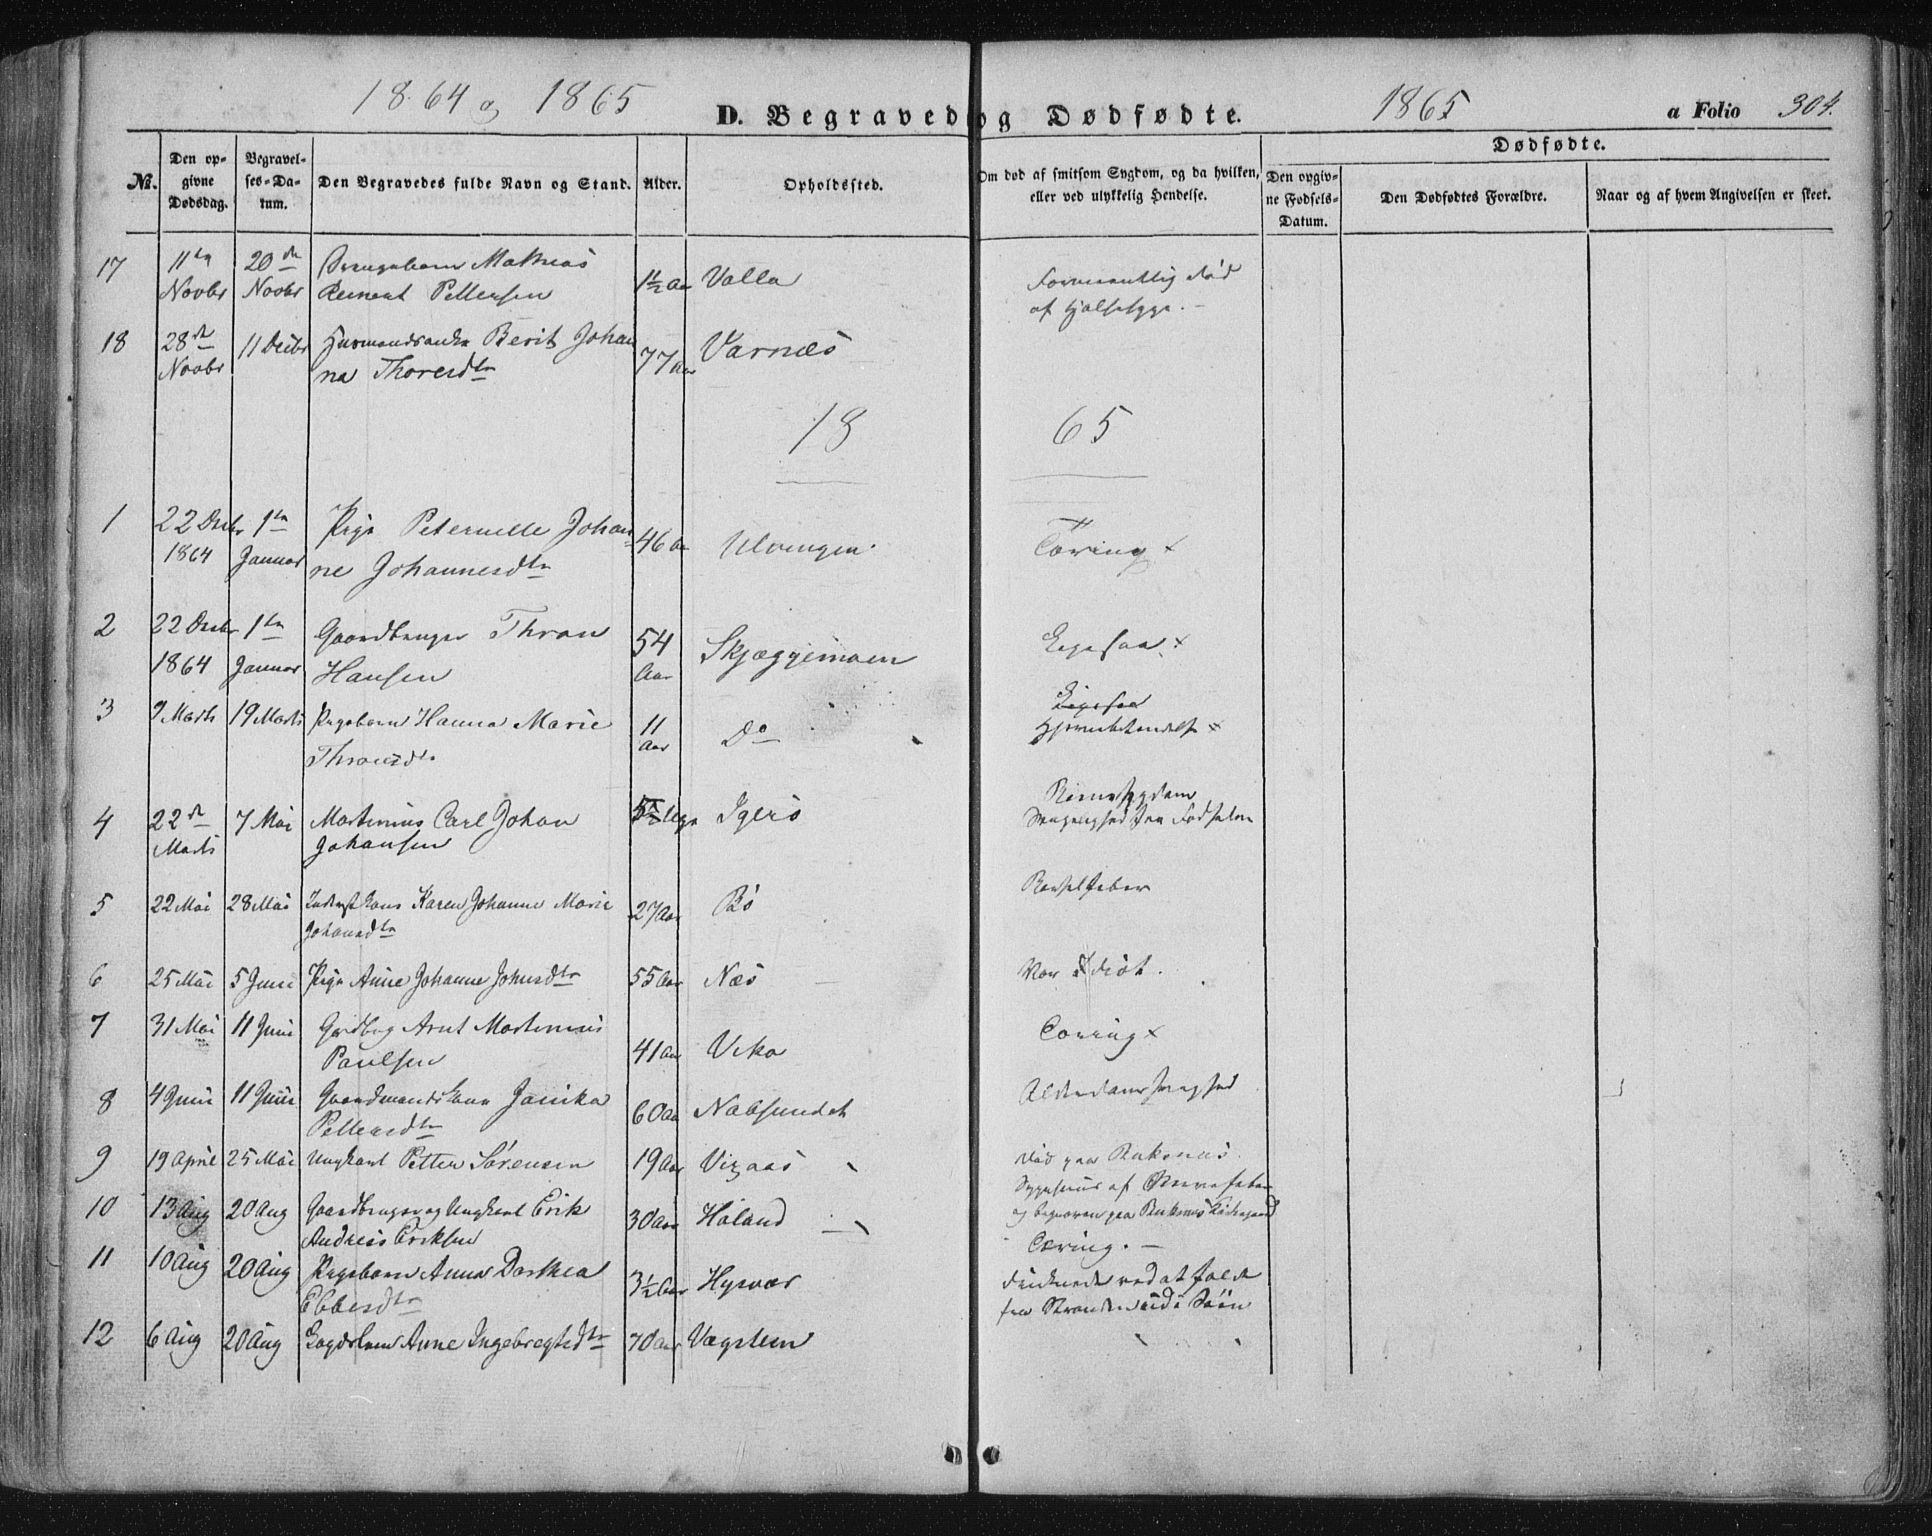 1864 og 1865
D. Begravede og Dødfødte.
1865
a Folio 304.
Dødfødte.
No.
Den opgivne Dødsdag.
Begravelses-Datum.
Den Begravedes fulde Navn og Stand.
Alder.
Opholdssted.
Om død af smitsom Sygdom, og da hvilken, eller ved ulykkelig Hendelse.
Den opgivne Fødsels-Datum.
Den Dødfødtes Forældre.
Naar og af hvem Angivelsen er skeet.
17 11te 20de Drengebarn Mathias
Novbr Novbr Reinert Pettersen 1½ Aar Valla Formentlig død
af Halssyge.
18 28de 11 Decbr Huusmandsenke Berit Johan
Novbr na Thoresdtr 77 Aar Varnæs
18 65
1 22 Decbr 1te Pige Peternelle Johan
1864 Januar ne Johannesdtr 46 Aar Ulvingen Tæring x
2 22 Decbr 1te Gaardbruger Thron 54
1864 Januar Hansen Aar Skjæggemoen x
3 9 Marts 19 Marts Pigebarn Hanna Marie 11
Thronsdtr Aar Do Hjernebetændelse x
4 22de 7 Mai Martinius Carl Johan Uger Igerø
Marts Johansen Svagelighed fra Fødselen
5 22 Mai 28 Mai Inderst Kone Karen Johanne Marie 27 Aar Bø Barselfeber
Johansdtr
6 25 Mai 5 Juni Pige Anne Johanne Johnsdtr 55 Aar Næs Var Idiot.
7 31 Mai 11 Juni Gardbrg Arnt Martinius
Paulsen 41 Aar Vika Tæring x
8 4 Juni 11 Juni Gaardmandskone Janika Alderdomssvaghed
Pettersdtr 60 Aar Nabsundet
9 19 April 25 Mai Ungkarl Petter Sørensen 19 Aar Vigaas Død paa Buksnæs
Sygehuus af Nervefeber
og begraven paa Buksnæs Kirkegaard
10 13 Aug 20 Aug Gaardbruger og Ungkarl Erik 30 Aar Haland
Andreas Eriksen Tæring. —
11 10 Aug 20 Aug Pigebarn Anna Dorthea 3½ Aar Hysvær druknede ved at falde
Ebbesdtr fra Stranden ud i Søen
12 6 Aug 20 Aug Lægdslem Anne Ingebregtsdtr 70 Aar Vægstein